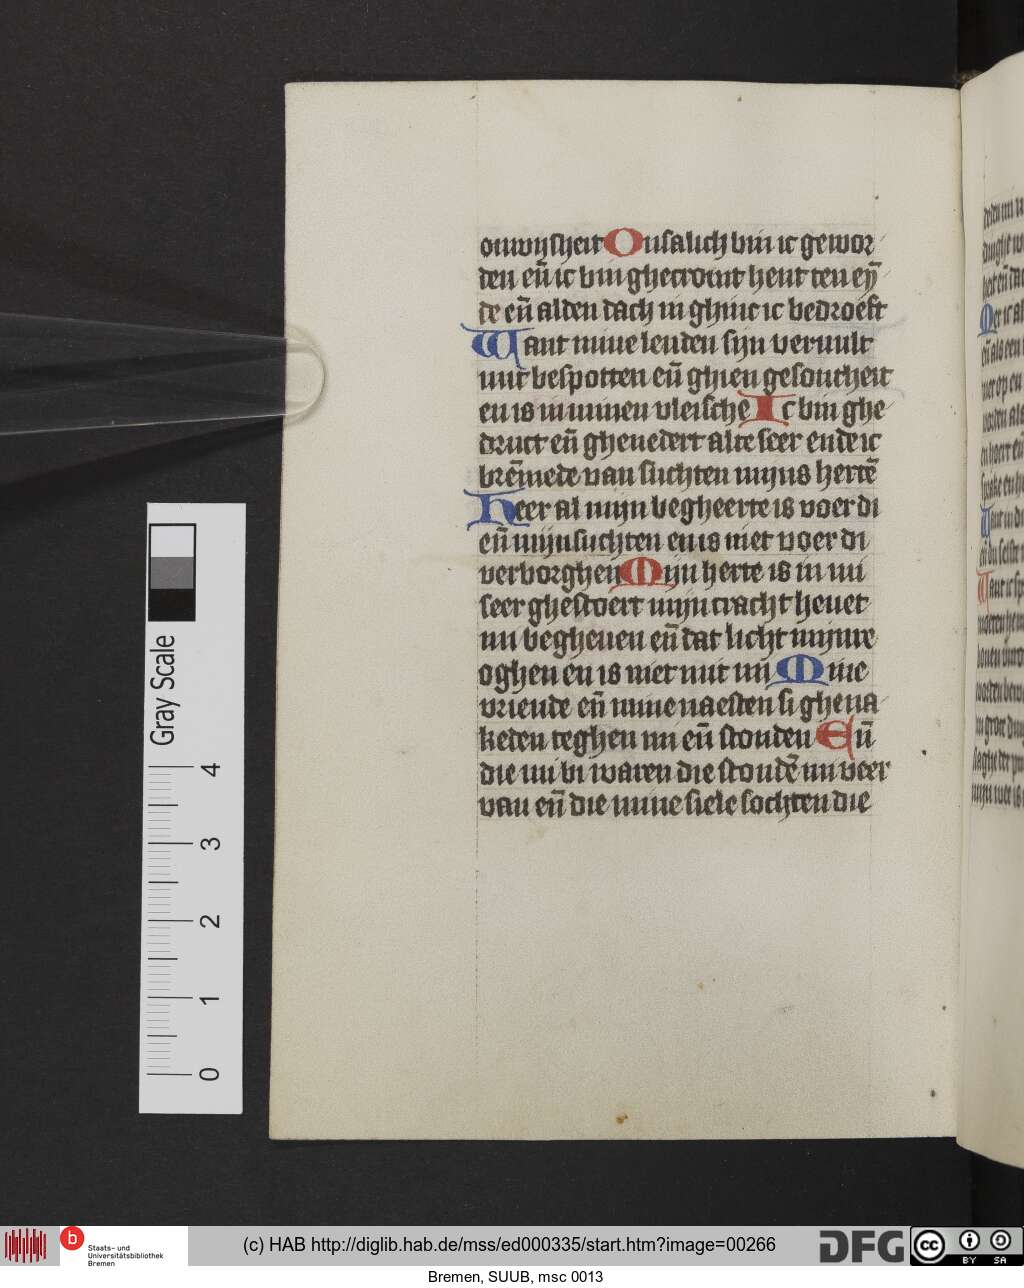 onwijsheit Onsalich bin ic gewor
den en̄ ic bin ghecromt hent ten eȳ
de en̄ alden dach in ghinc ic bedroeft
Want mine lenden sijn veruult
mit bespotten en̄ ghien gesontheit
en is in minen vleische Ic bin ghe
druct en̄ gheuedert alte seer ende ic
brēmede van suchten mijns hertē
Heer al mijn begheerte is voer di
en̄ mijn suchten en is niet voer di
verborghen Mijn herte is in mi
seer ghestoert mijn cracht heuet
mi begheuen en̄ dat licht mijnre
oghen en is niet mit mi Mine
vriende en̄ mine naesten si ghena
keden teghen mi en̄ stonden En̄
die mi bi waren die stondē mi veer
van en̄ die mine siele sochten die
Gray Scale
4
3
2
1
0
b
Staats- und
Universitätsbibliothek
Bremen
(c) HAB http://diglib.hab.de/mss/ed000335/start.htm?image=00266
DFG
cc
BY SA
Bremen, SUUB, msc 0013